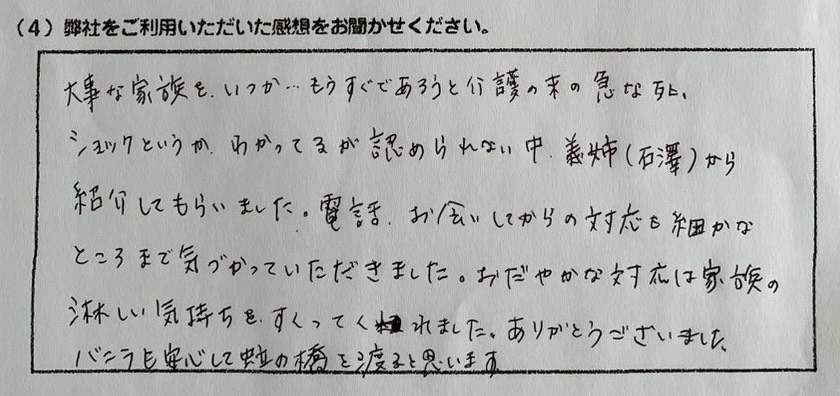 (4) 弊社をご利用いただいた感想をお聞かせください。
大事な家族を、いつか…もうすぐであろうと介護の末の急な死、
ショックというか、わかってるが認められない中、義姉(石澤)から
紹介してもらいました。電話、お会いしてからの対応も細かな
ところまで気づかっていただきました。おだやかな対応は家族の
淋しい気持ちを、すくってくれました。ありがとうございました。
バニラも安心して虹の橋を渡ると思います